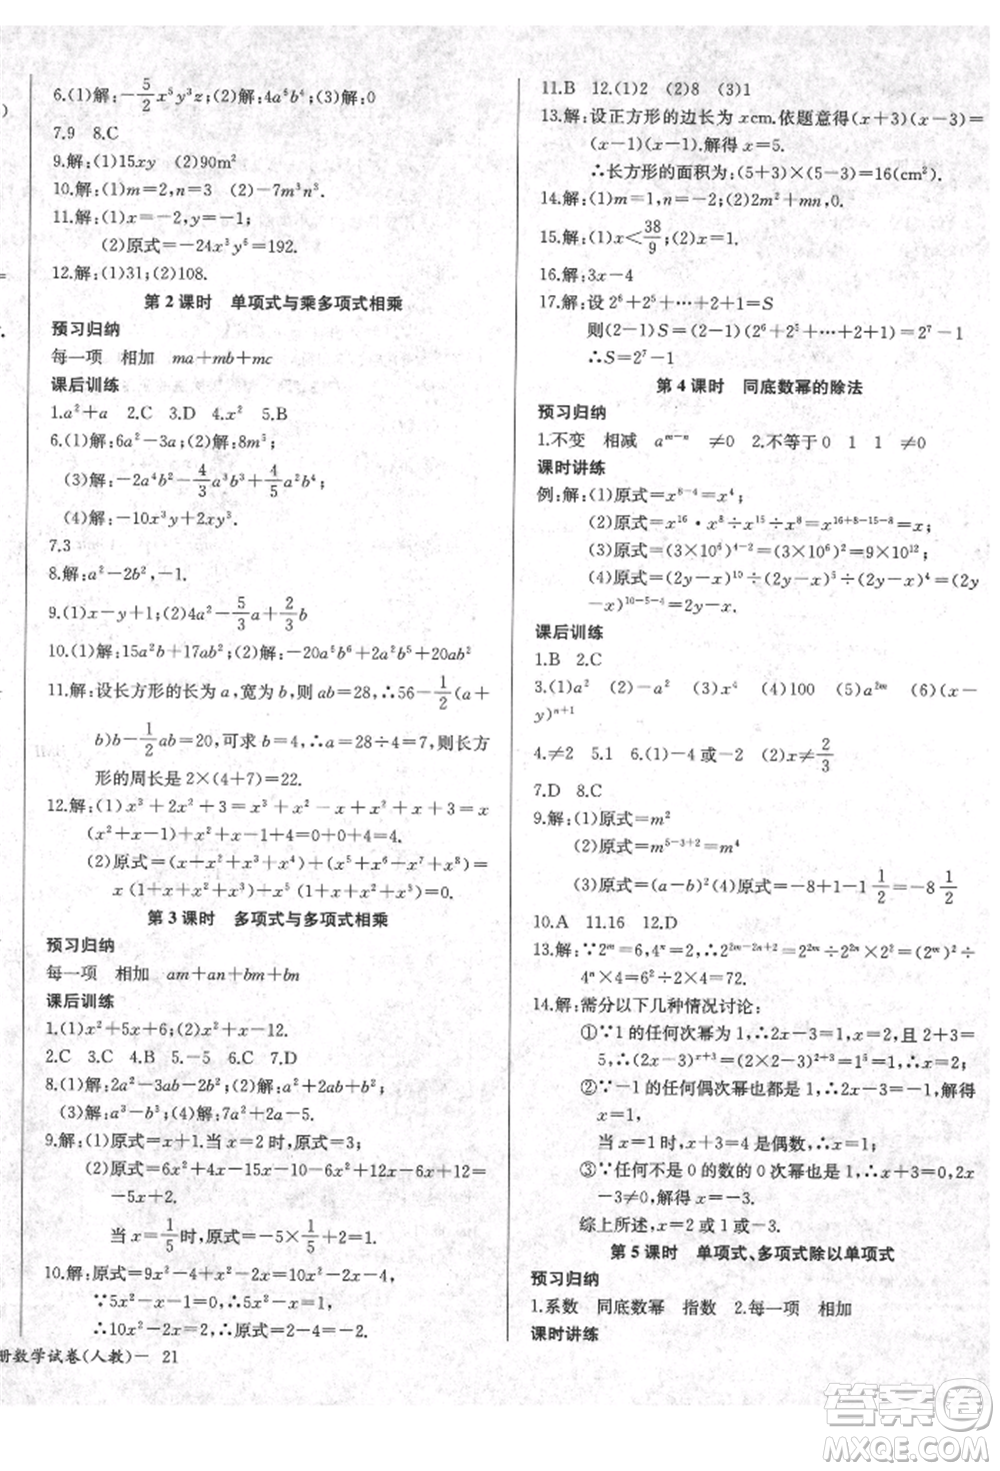 6.(1)解:-5/2x⁵y³z;(2)解:4a⁸b⁴;(3)解:0
7.9 8.C
9.解:(1)15xy (2)90m²
10.解:(1)m=2,n=3 (2)-7m³n³.
11.解:(1)x=-2,y=-1;
(2)原式=-24x³y⁶=192.
12.解:(1)31;(2)108.
第2课时 单项式与乘多项式相乘
预习归纳
每一项 相加 ma+mb+mc
课后训练
1.a²+a 2.C 3.D 4.x² 5.A
6.(1)解:6a²-3a;(2)解:8m³;
(3)解:-2a⁴b²-4/3a³b³+4/5a²b²;
(4)解:-10x³y+2xy³.
7.3
8.解:a²-2b²,-1.
9.(1)x-y+1;(2)4a²-5/3a+2/3b
10.(1)解:15a²b+17ab²;(2)解:-20a³b²+20ab²
11.解:设长方形的长为a,宽为b,则ab=28,∴56-1/2(a+
b)b-1/2ab=20,可求b=4,∴a=28÷4=7,则长方
形的周长是2×(4+7)=22.
12.解:(1)x³+2x²+3=x³+x²-x+x²+x+3=x
(x²+x-1)+(x²+x-1)+4=0+0+4=4.
(2)原式=(x+x²+x³+x⁴)+(x⁵+x⁶+x⁷+x⁸)=
x(1+x+x²+x³)+x⁵(1+x+x²+x³)=0.
第3课时 多项式与多项式相乘
预习归纳
每一项 相加 am+an+bm+bn
课后训练
1.(1)x²+5x+6;(2)x²+x-12.
2.C 3.A 4.B 5.-5 6.C 7.D
8.(1)解:2a²-3ab-2b²;(2)解:5x²+7y²;
(3)解:a³-b³;(4)解:7a²+2a-5.
9.解:(1)原式=x+1.当x=2时,原式=3;
(2)原式=6x²-9x+2x-3-6x²+6x-6x+12=
-5x+2.
当x=1/5时,原式=-5×1/5+2=1.
10.解:原式=9x²-4-5x²+5x-(4x²-4x+x-1)=
∵5x²-x-2=0,∴5x²-x=2,
∴10x²-2x=4,∴原式=4-5=-1.
册数学试卷(人教)— 21
11.B 12.(1)2 (2)8 (3)1
13.解:设正方形的边长为xcm.依题意得(x+3)(x-3)=
(x-1)(x-1).解得x=5.
∴长方形的面积为:(5+3)×(5-3)=16(cm²).
14.解:(1)m=1,n=-2;(2)2m²+mn,0.
15.解:(1)x<38/9;(2)x=1.
16.解:3x-4
17.解:设2⁶+2⁵+…+2+1=S
则(2-1)S=(2-1)(2⁶+2⁵+…+2+1)=2⁷-1
∴S=2⁷-1
第4课时 同底数幂的除法
预习归纳
1.不变 相减 aᵐ⁻ⁿ ≠0 2.不等于0 1 1 ≠0
课时讲练
例:解:(1)原式=x⁸⁻⁴=x⁴;
(2)原式=x¹⁶·x⁸÷x¹⁵÷x⁸=x¹⁶⁺⁸⁻¹⁵⁻⁸=x;
(3)原式=(3×10⁶)⁴⁻²=(3×10⁶)²=9×10¹²;
(4)原式=(2y-x)¹⁰÷(2y-x)⁵÷(2y-x)⁴=(2y
-x)¹⁰⁻⁵⁻⁴=2y-x.
课后训练
1.B 2.C
3.(1)a² (2)-a² (3)x⁴ (4)100 (5)a²ᵐ (6)(x-
y)ⁿ⁺¹
4.≠2 5.1 6.(1)-4或-2 (2)x≠2/3
7.D 8.C
9.解:(1)原式=m²
(2)原式=m⁵⁻³⁺²=m⁴
(3)原式=(a-b)²(4)原式=1-8-1 1/2=-8 1/2
10.A 11.16 12.D
13.解:∵2ᵐ=6,4ⁿ=2,∴2²ᵐ⁻²ⁿ⁺²=2²ᵐ÷2²ⁿ×2²=(2ᵐ)²÷
4ⁿ×4=6²÷2×4=72.
14.解:需分以下几种情况讨论:
①∵1的任何次幂为1,∴2x-3=1,x=2,且2+3=
5,∴(2x-3)ˣ⁺³=(2×2-3)⁵=1⁵=1,∴x=2;
②∵-1的任何偶次幂为1,∴2x-3=-1,解得
x=1,
当x=1时,x+3=4,是偶数,∴x=1;
③∵任何不是0的数的0次幂为1,∴x+3=0,2x
-3≠0,解得x=-3.
综上所述,x=2或1或-3.
第5课时 单项式、多项式除以单项式
预习归纳
1.系数 同底数幂 指数 2.每一项 相加
课时讲练
答案圈
MXQE.COM